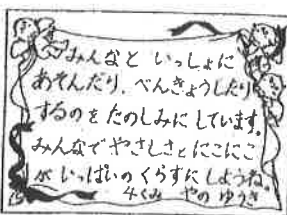 みんなと いっしょに
あそんだり、べんきょうしたり
するのを たのしみに しています。
みんなで やさしさと にこにこ
が いっぱいの くらすに しようね。
4くみ やの ゆうき